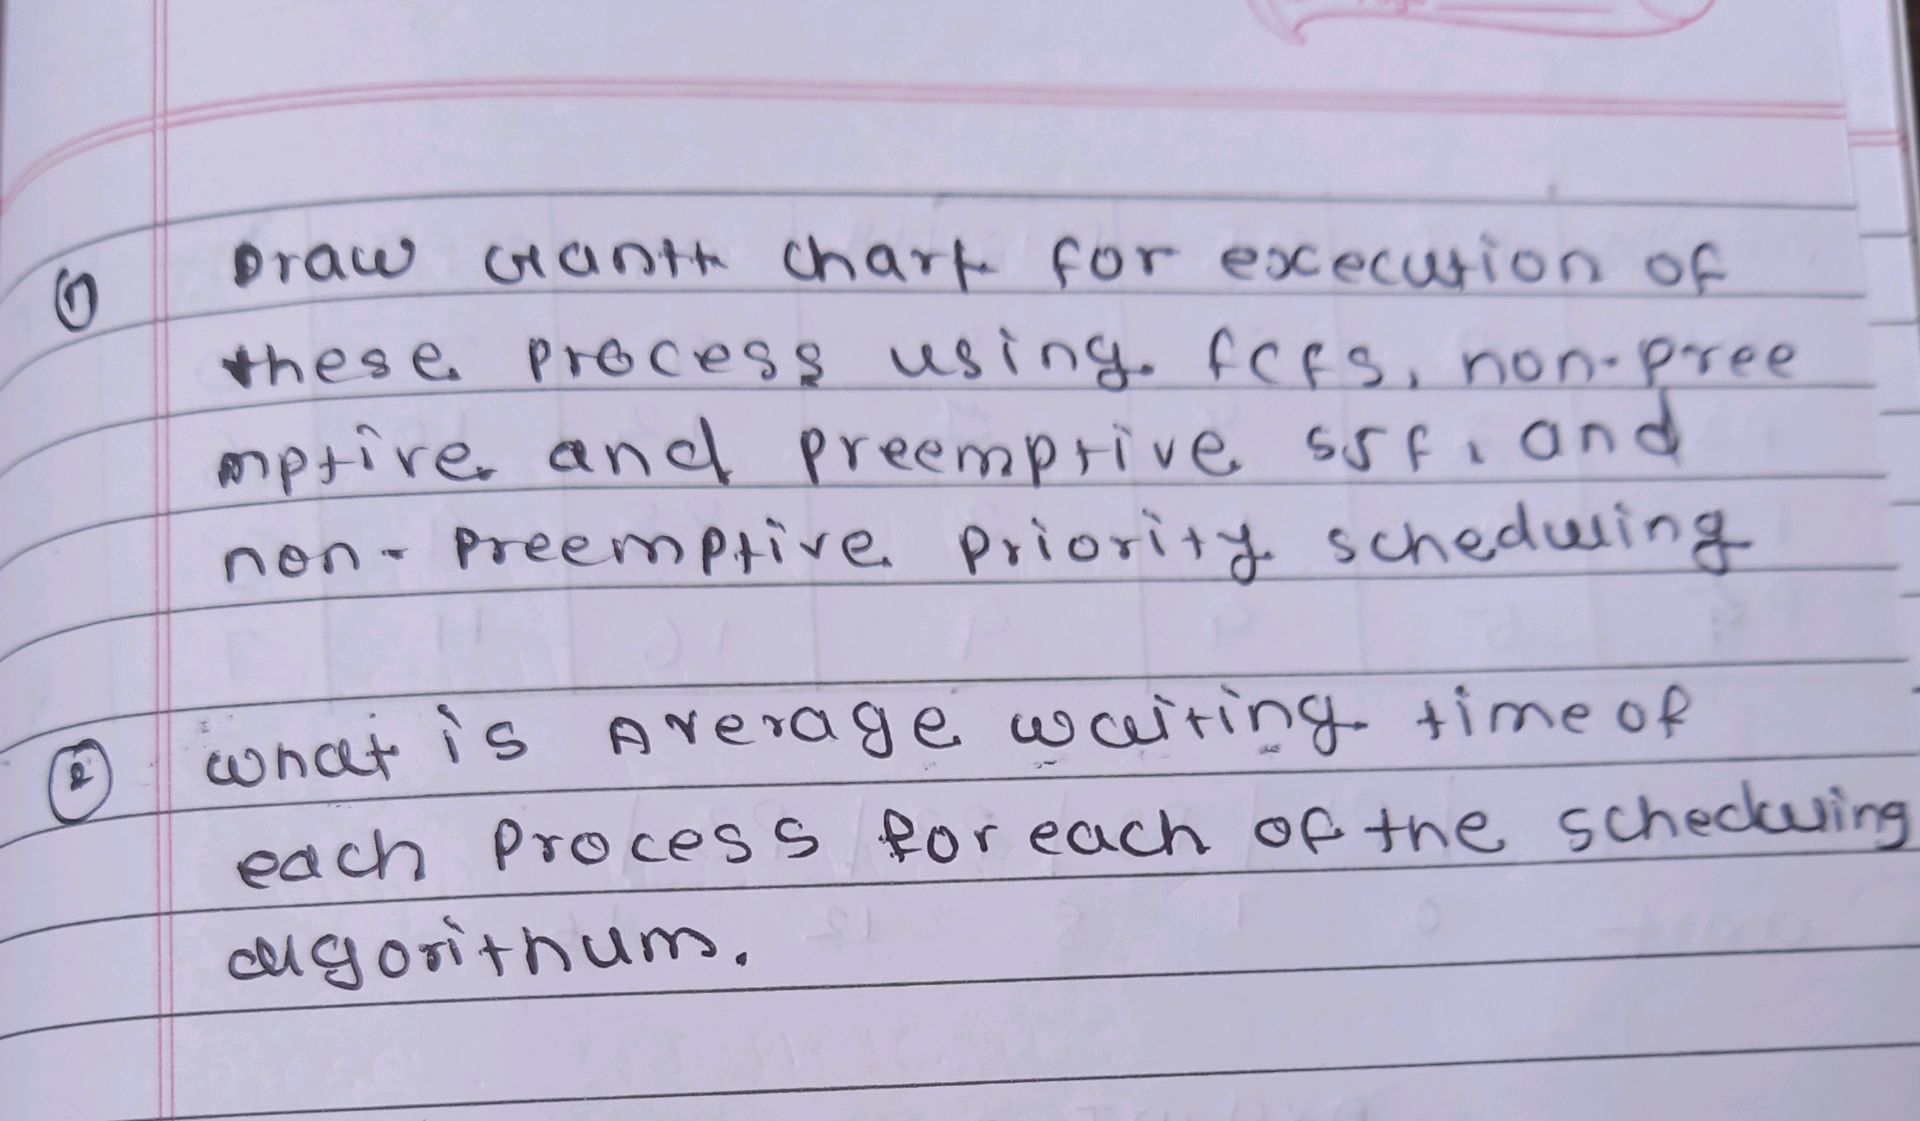 ① Draw Gantt chart for execution of
these process using fcfs, non-pree
mptive and preemptive SJF, and
non-preemptive priority scheduling
② What is Average waiting time of
each process for each of the scheduling
algorithum.